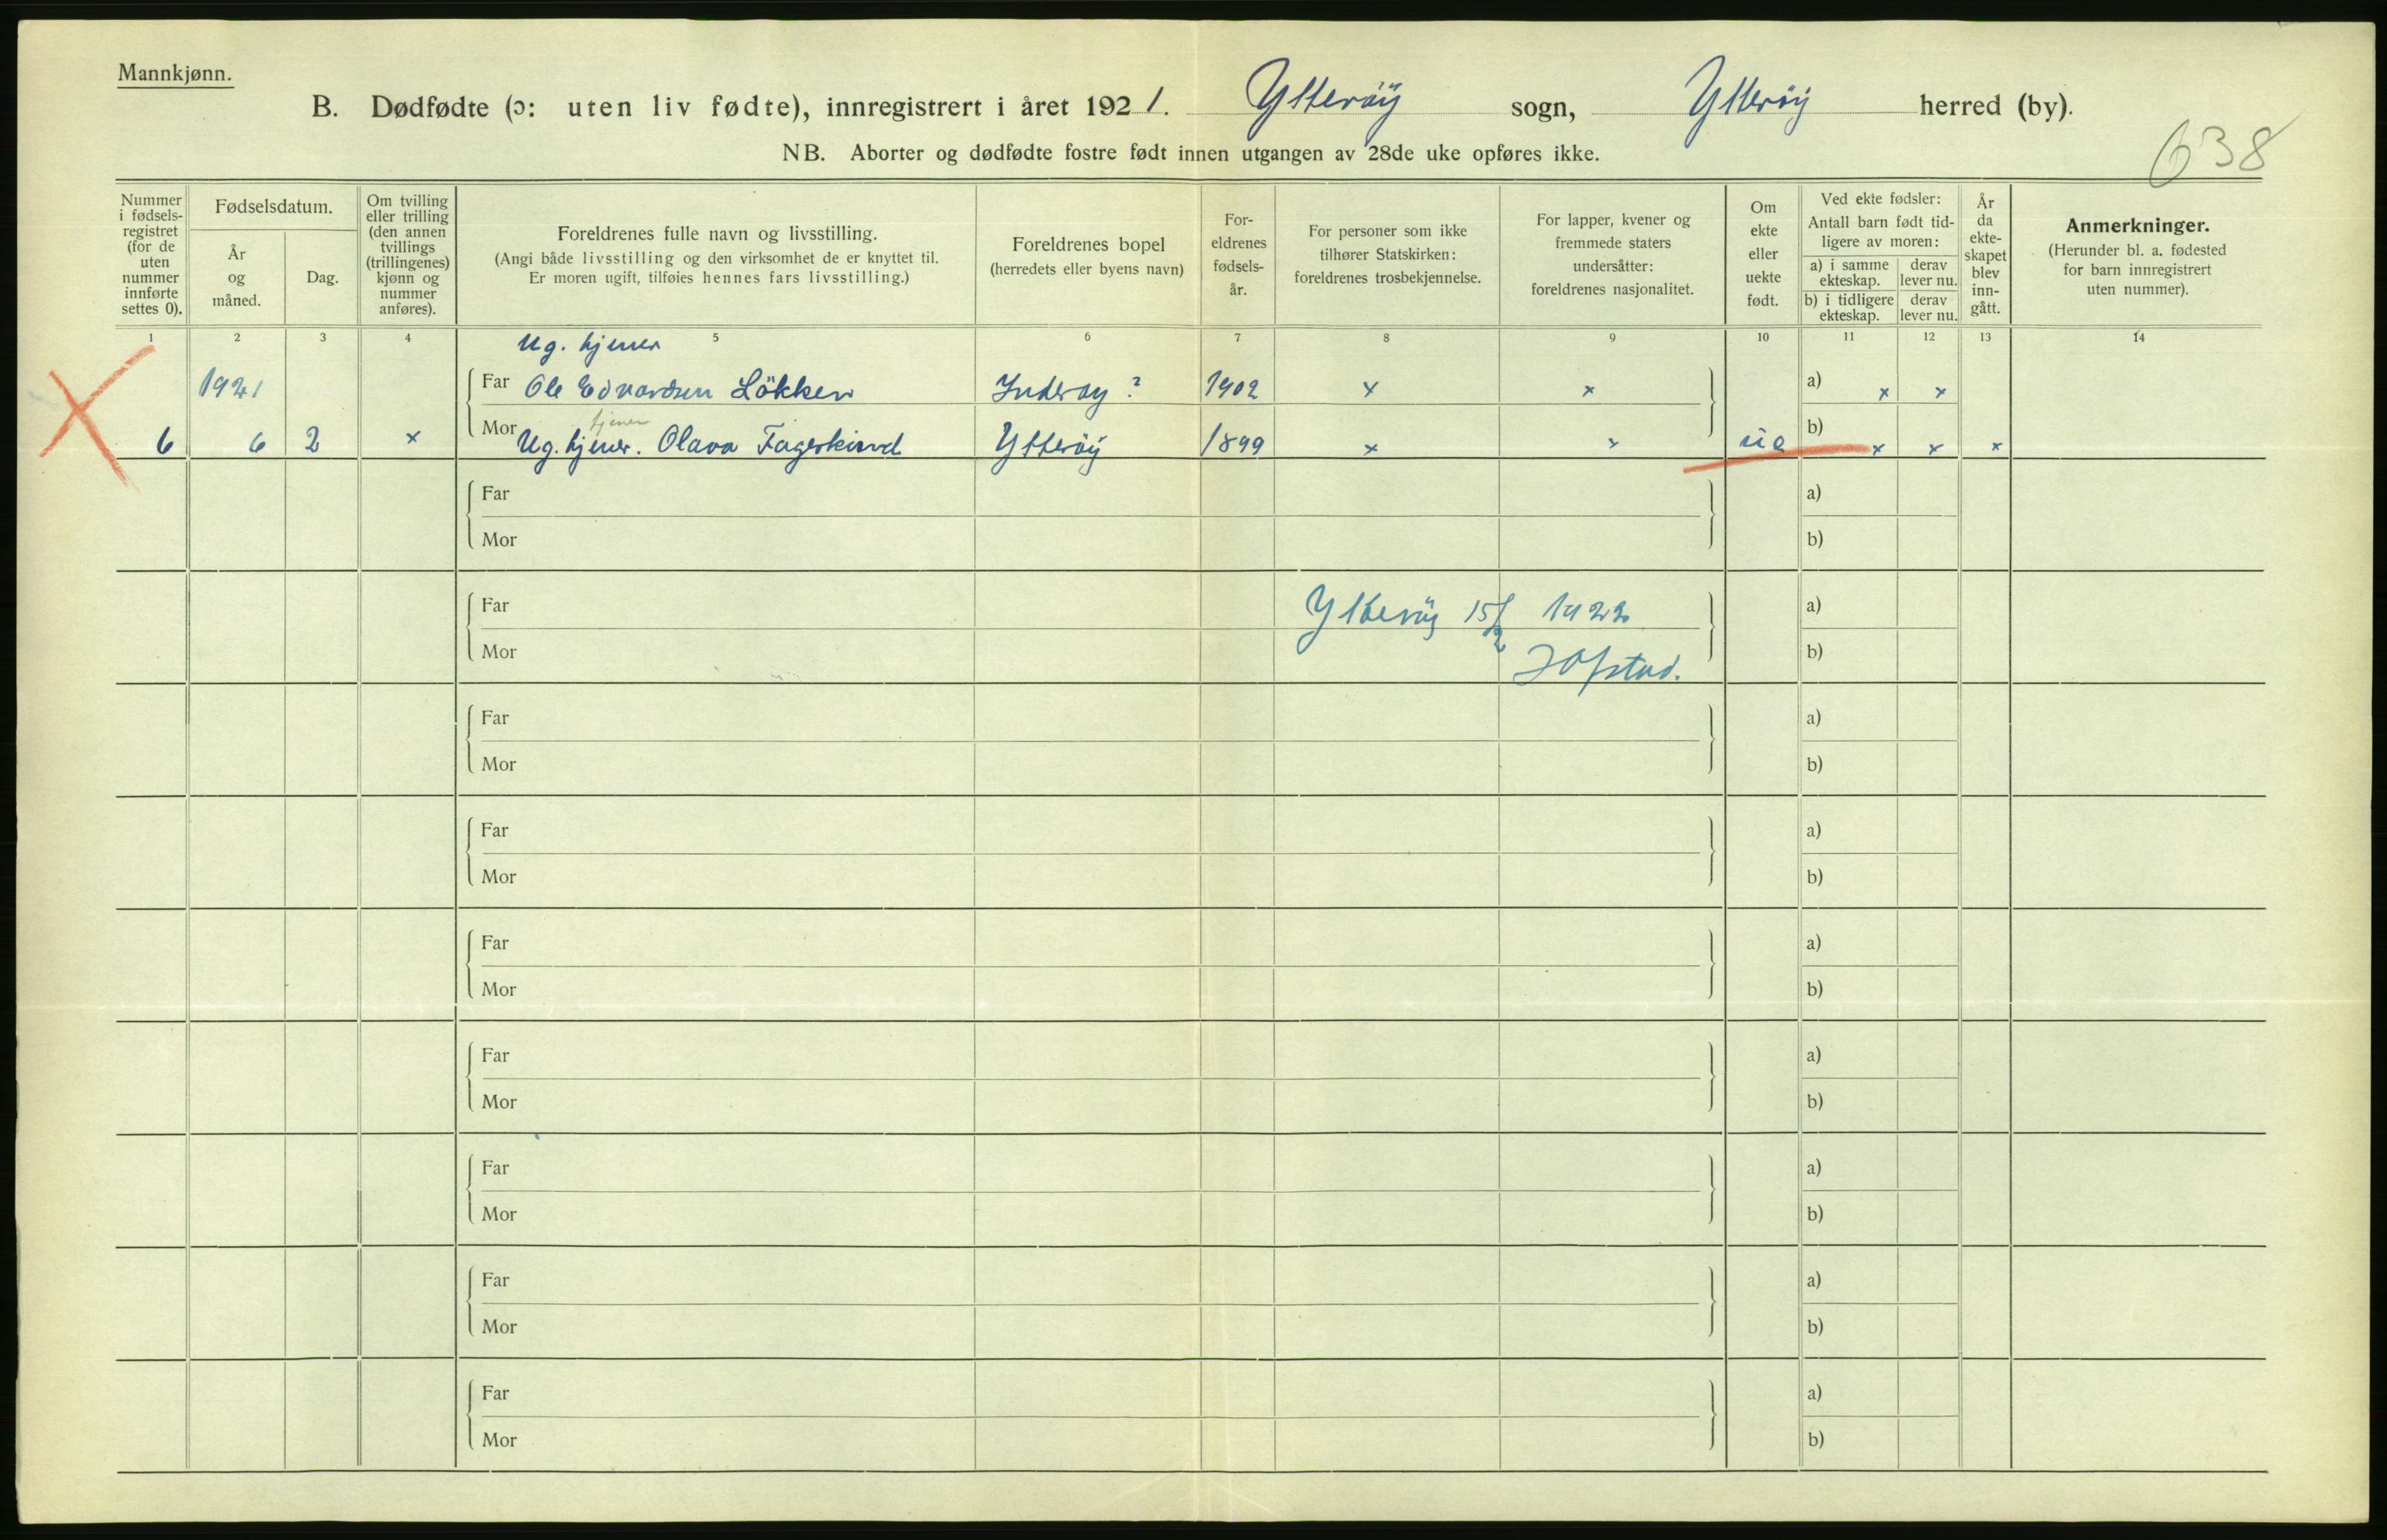 Mannkjønn.
B. Dødfødte (ɔ: uten liv fødte), innregistrert i året 1921. Ytterøy sogn, Ytterøy herred (by).
NB. Aborter og dødfødte fostre født innen utgangen av 28de uke opføres ikke.
638
Nummer i fødsels-registret (for de uten nummer innførte settes 0).
Fødselsdatum.
År og måned.
Dag.
Om tvilling eller trilling (den annen tvillings (trillingenes) kjønn og nummer anføres).
Foreldrenes fulle navn og livsstilling.
(Angi både livsstilling og den virksomhet de er knyttet til.
Er moren ugift, tilføies hennes fars livsstilling.)
Foreldrenes bopel
(herredets eller byens navn)
For-eldrenes fødsels-år.
For personer som ikke tilhører Statskirken: foreldrenes trosbekjennelse.
For lapper, kvener og fremmede staters undersåtter: foreldrenes nasjonalitet.
Om ekte eller uekte født.
Ved ekte fødsler:
Antall barn født tid-ligere av moren:
a) i samme ekteskap.
derav lever nu.
b) i tidligere ekteskap.
derav lever nu.
År da ekte-skapet blev inn-gått.
Anmerkninger.
(Herunder bl. a. fødested for barn innregistrert uten nummer).
1 2 3 4 5 6 7 8 9 10 11 12 13 14
Ug. tjener
1921 Far Ole Edvardsen Løkken Inderøy ? 1902 x x a) x x
tjener
6 6 2 x Mor Ug. tjener. Olava Fagerstrand Ytterøy 1899 x x ue b) x x x
Far a)
Mor b)
Far Ytterøy 15/2 1922 a)
Mor Hofstad. b)
Far a)
Mor b)
Far a)
Mor b)
Far a)
Mor b)
Far a)
Mor b)
Far a)
Mor b)
Far a)
Mor b)
Far a)
Mor b)